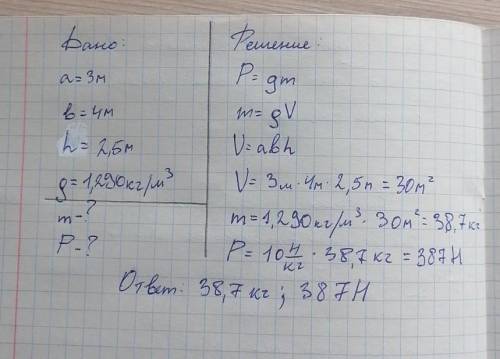 Дано:
a=3м
в=4м
h=2,5м
g=1,290кг/м³
m-?
P-?
Решение:
P=gm
m=gV
V=aвh
V=3м·4м·2,5м=30м²
m=1,290кг/м³·30м²=38,7кг
P=10 Н/кг · 38,7кг=387Н
Ответ: 38,7кг; 387Н